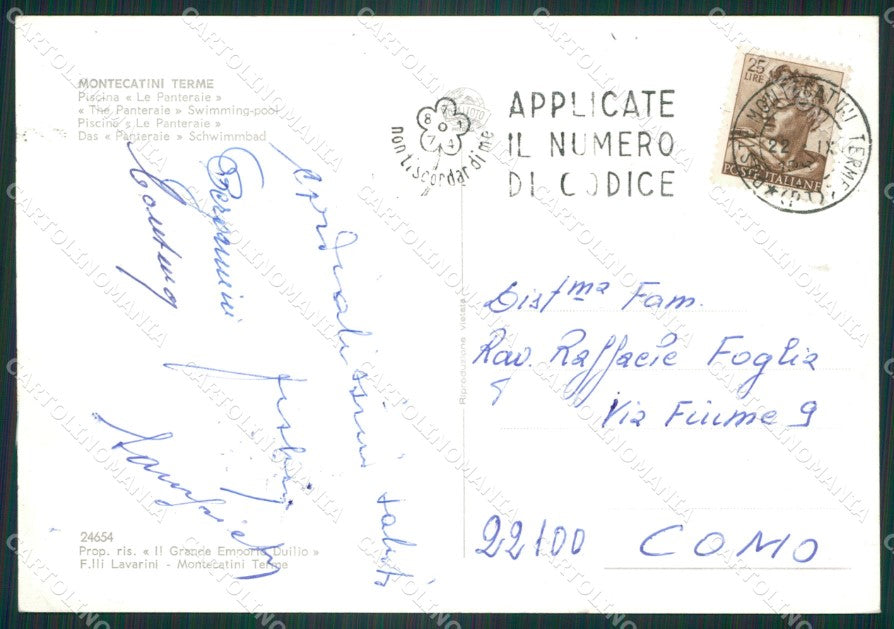 MONTECATINI TERME
Piscina « Le Panteraie »
« The Panteraie » Swimming-pool
Piscine « Le Panteraie »
Das « Panteraie » Schwimmbad
cordialissimi saluti
24654
Prop. ris. « Il Grande Emporio Duilio »
F.lli Lavarini - Montecatini Terme
Riproduzione vietata
non ti scordar di me
APPLICATE
IL NUMERO
DI CODICE
25
LIRE
POSTE ITALIANE
MONTECATINI TERME
22 IX
Dist.ma Fam.
Rav. Raffaele Foglia
Via Fiume 9
22100 COMO
CARTOLINOMANIA